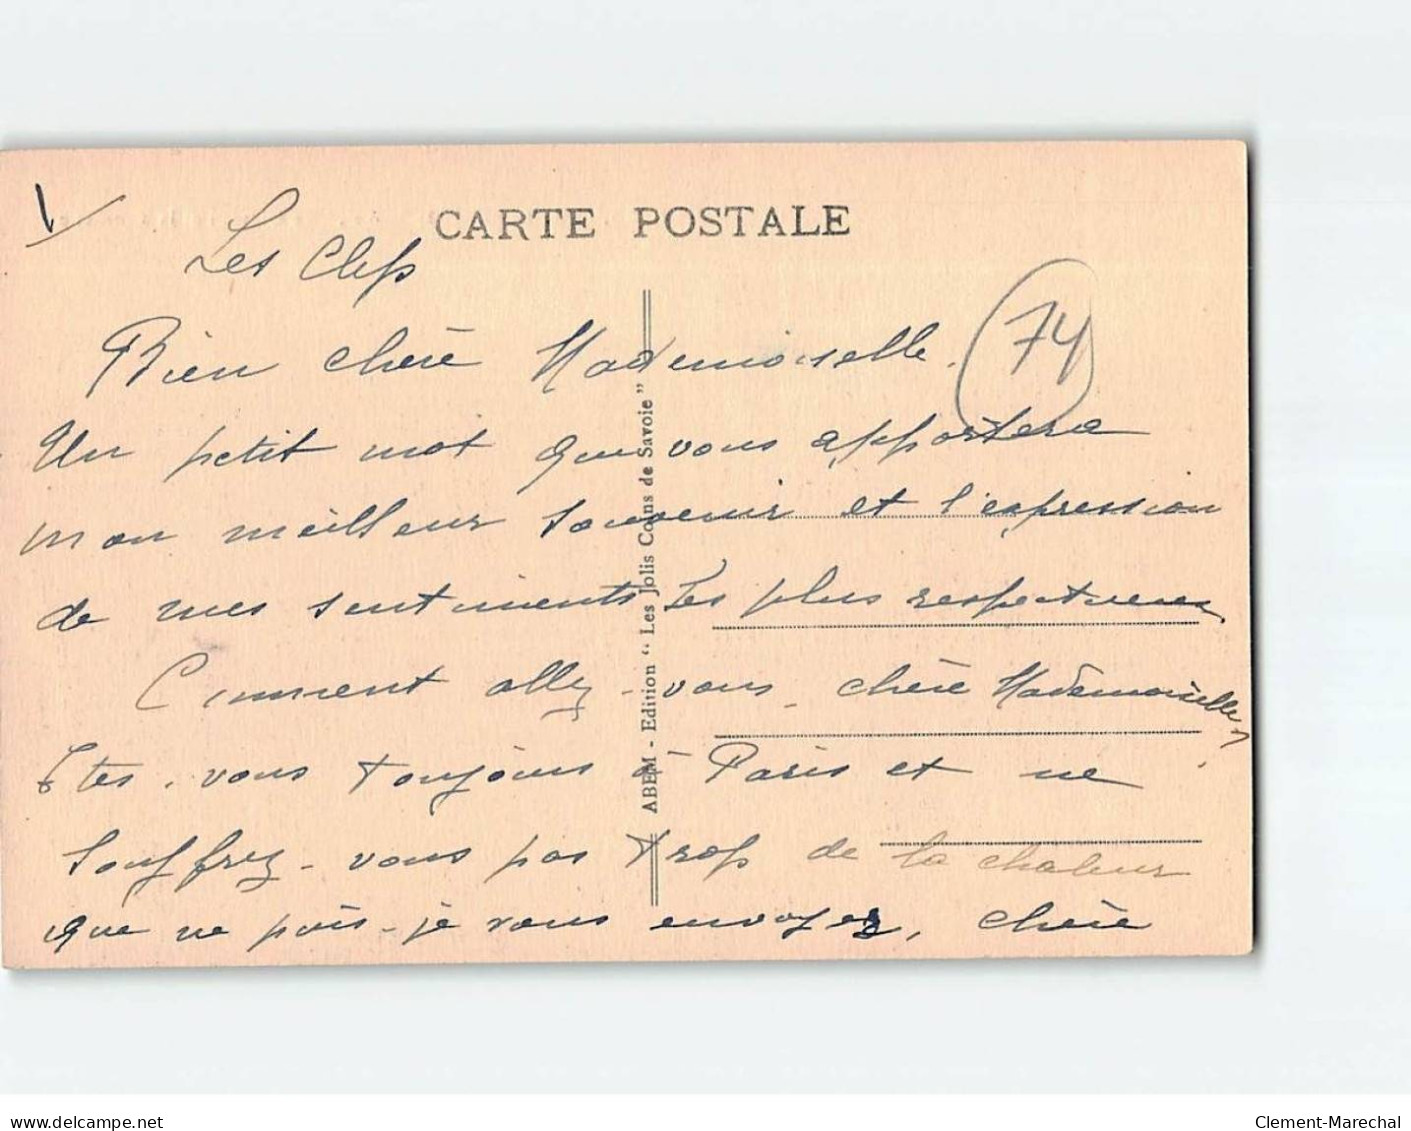 CARTE POSTALE
Les Clefs
74
Bien chère Mademoiselle.
Un petit mot que vous apportera
mon meilleur souvenir et l'expression
de mes sentiments les plus respectueux
Comment allez-vous, chère Mademoiselle?
Etes-vous toujours à Paris et ne
souffrez-vous pas trop de la chaleur
que ne puis-je vous envoyer, chère
ABEM - Edition "Les Jolis Coins de Savoie"
www.delcampe.net
Clement-Marechal